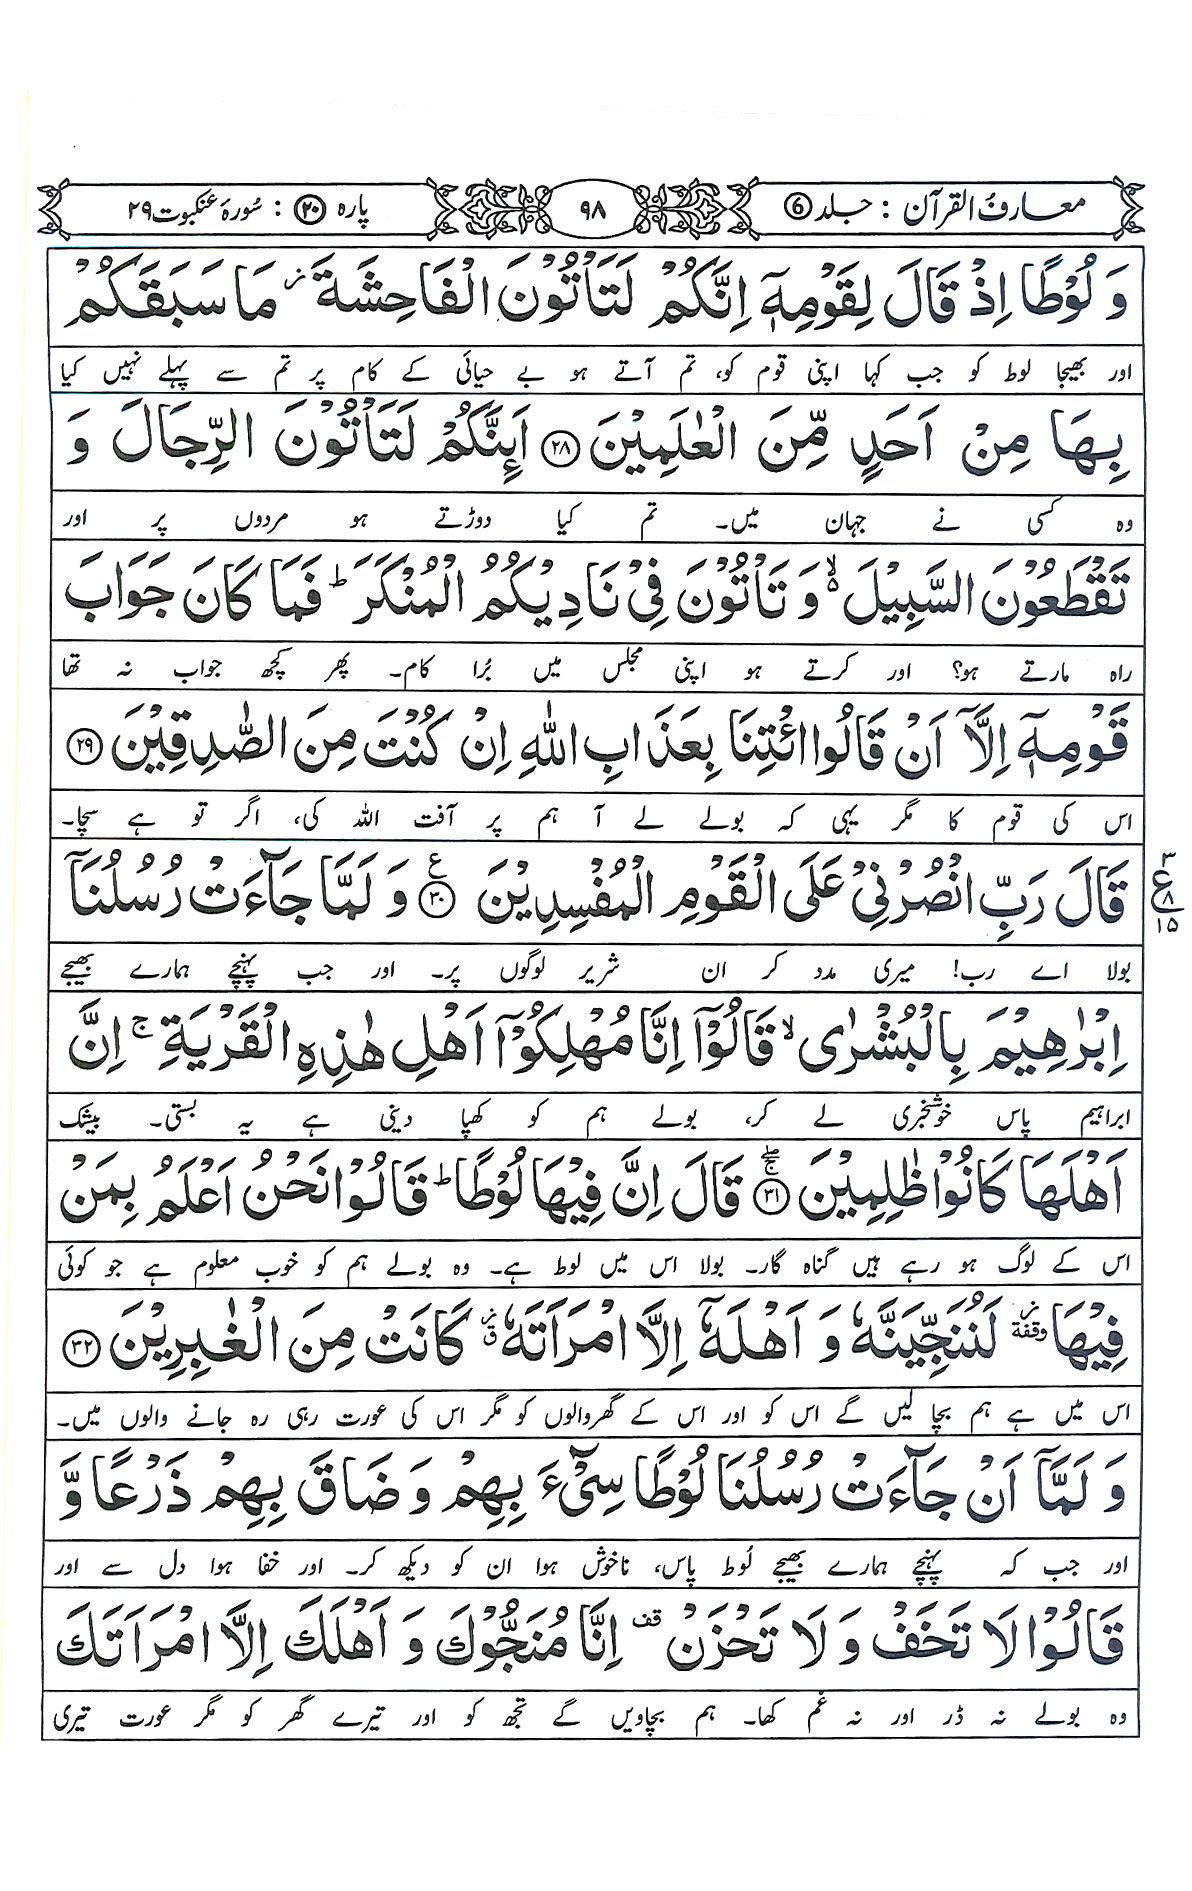 معارفُ القرآن : جلد ⑥
۹۸
پارہ ۲۰ : سُورۂ عنکبوت ۲۹
وَ لُوْطًا اِذْ قَالَ لِقَوْمِهٖۤ اِنَّكُمْ لَتَاْتُوْنَ الْفَاحِشَةَ ز مَا سَبَقَكُمْ
اور بھیجا لوط کو جب کہا اپنی قوم کو، تم آتے ہو بے حیائی کے کام پر تم سے پہلے نہیں کیا
بِهَا مِنْ اَحَدٍ مِّنَ الْعٰلَمِيْنَ ۲۸ اَىِٕنَّكُمْ لَتَاْتُوْنَ الرِّجَالَ وَ
وہ کسی نے جہان میں۔ تم کیا دوڑتے ہو مردوں پر اور
تَقْطَعُوْنَ السَّبِيْلَ ۙ۬ وَ تَاْتُوْنَ فِيْ نَادِيْكُمُ الْمُنْكَرَ ؕ فَمَا كَانَ جَوَابَ
راہ مارتے ہو؟ اور کرتے ہو اپنی مجلس میں بُرا کام۔ پھر کچھ جواب نہ تھا
قَوْمِهٖۤ اِلَّاۤ اَنْ قَالُوا ائْتِنَا بِعَذَابِ اللّٰهِ اِنْ كُنْتَ مِنَ الصّٰدِقِيْنَ ۲۹
اس کی قوم کا مگر یہی کہ بولے لے آ ہم پر آفت اللہ کی، اگر تو ہے سچا۔
قَالَ رَبِّ انْصُرْنِيْ عَلَى الْقَوْمِ الْمُفْسِدِيْنَ ۳۰ ع وَ لَمَّا جَآءَتْ رُسُلُنَاۤ
۳
ع ۸
۱۵
بولا اے رب! میری مدد کر ان شریر لوگوں پر۔ اور جب پہنچے ہمارے بھیجے
اِبْرٰهِيْمَ بِالْبُشْرٰى ۙ قَالُوْۤا اِنَّا مُهْلِكُوْۤا اَهْلِ هٰذِهِ الْقَرْيَةِ ۚ اِنَّ
ابراہیم پاس خوشخبری لے کر، بولے ہم کو کھپا دینی ہے یہ بستی۔ بیشک
اَهْلَهَا كَانُوْا ظٰلِمِيْنَ ۳۱ ۚۖ قَالَ اِنَّ فِيْهَا لُوْطًا ؕ قَالُوْا نَحْنُ اَعْلَمُ بِمَنْ
اس کے لوگ ہو رہے ہیں گناہ گار۔ بولا اس میں لوط ہے۔ وہ بولے ہم کو خوب معلوم ہے جو کوئی
فِيْهَا ز وقفة لَنُنَجِّيَنَّهٗ وَ اَهْلَهٗۤ اِلَّا امْرَاَتَهٗ ز ق كَانَتْ مِنَ الْغٰبِرِيْنَ ۳۲
اس میں ہے ہم بچا لیں گے اس کو اور اس کے گھر والوں کو مگر اس کی عورت رہی رہ جانے والوں میں۔
وَ لَمَّاۤ اَنْ جَآءَتْ رُسُلُنَا لُوْطًا سِيْٓءَ بِهِمْ وَ ضَاقَ بِهِمْ ذَرْعًا وَّ
اور جب کہ پہنچے ہمارے بھیجے لُوط پاس، ناخوش ہوا ان کو دیکھ کر۔ اور خفا ہوا دل سے اور
قَالُوْا لَا تَخَفْ وَ لَا تَحْزَنْ قف اِنَّا مُنَجُّوْكَ وَ اَهْلَكَ اِلَّا امْرَاَتَكَ
وہ بولے نہ ڈر اور نہ غم کھا۔ ہم بچاویں گے تجھ کو اور تیرے گھر کو مگر عورت تیری